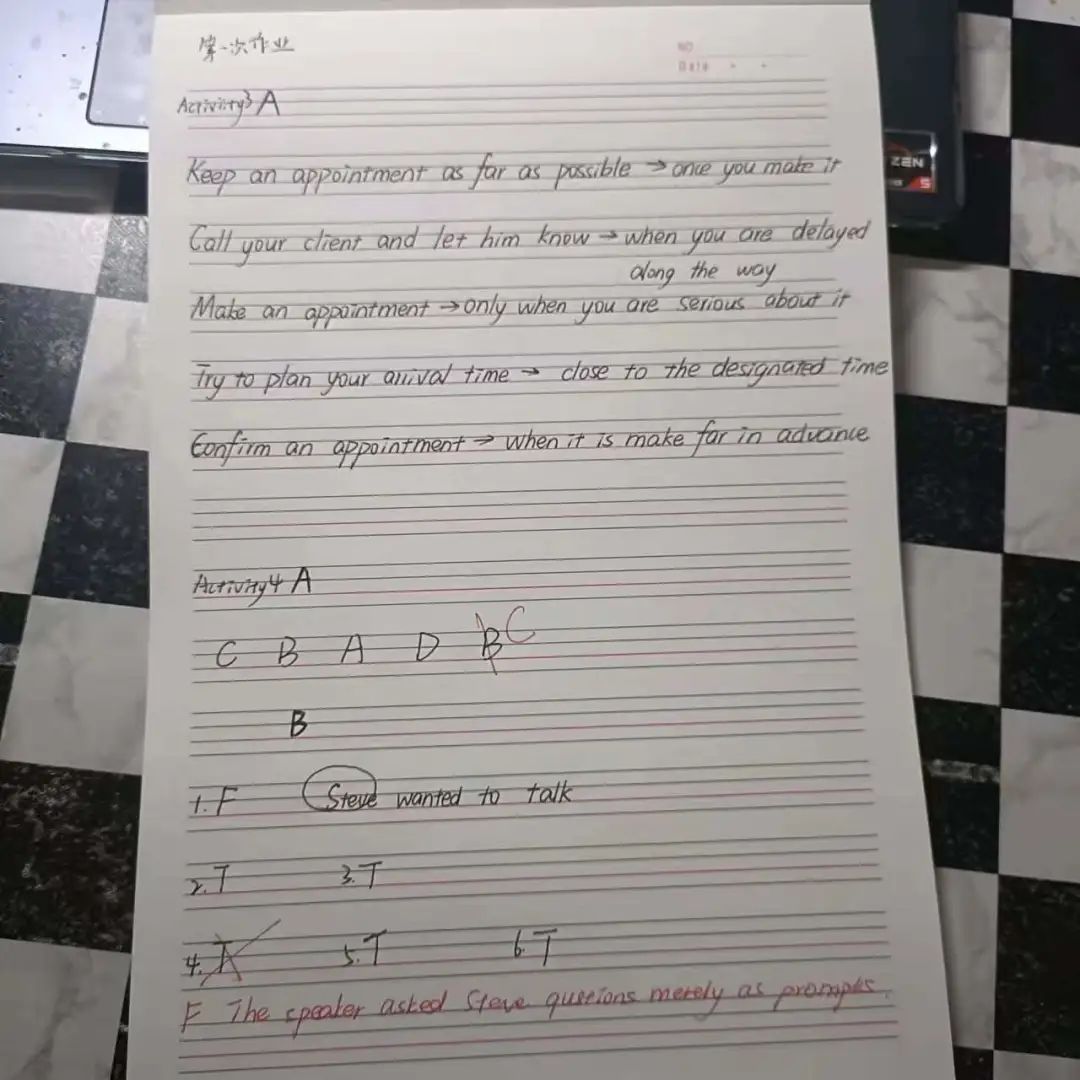 第一次作业
NO
Date
Activity3 A
Keep an appointment as far as possible → once you make it
ZEN
5
Call your client and let him know → when you are delayed
along the way
Make an appointment → only when you are serious about it
Try to plan your arrival time → close to the designated time
Confirm an appointment → when it is make far in advance
Activity4 A
C B A D B C
B
1. F Steve wanted to talk
2. T 3. T
4. 5. T 6. T
F The speaker asked Steve qustions merely as prompts.